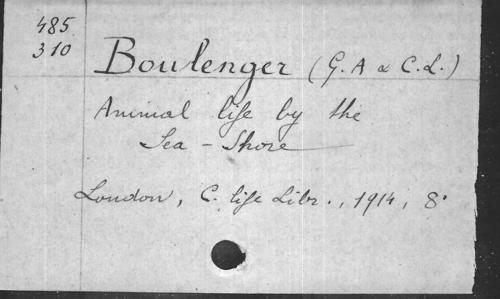 485
310
Boulenger (G. A & C. L.)
Animal life by the
Sea - Shore
London, C. life Libr., 1914, 8°